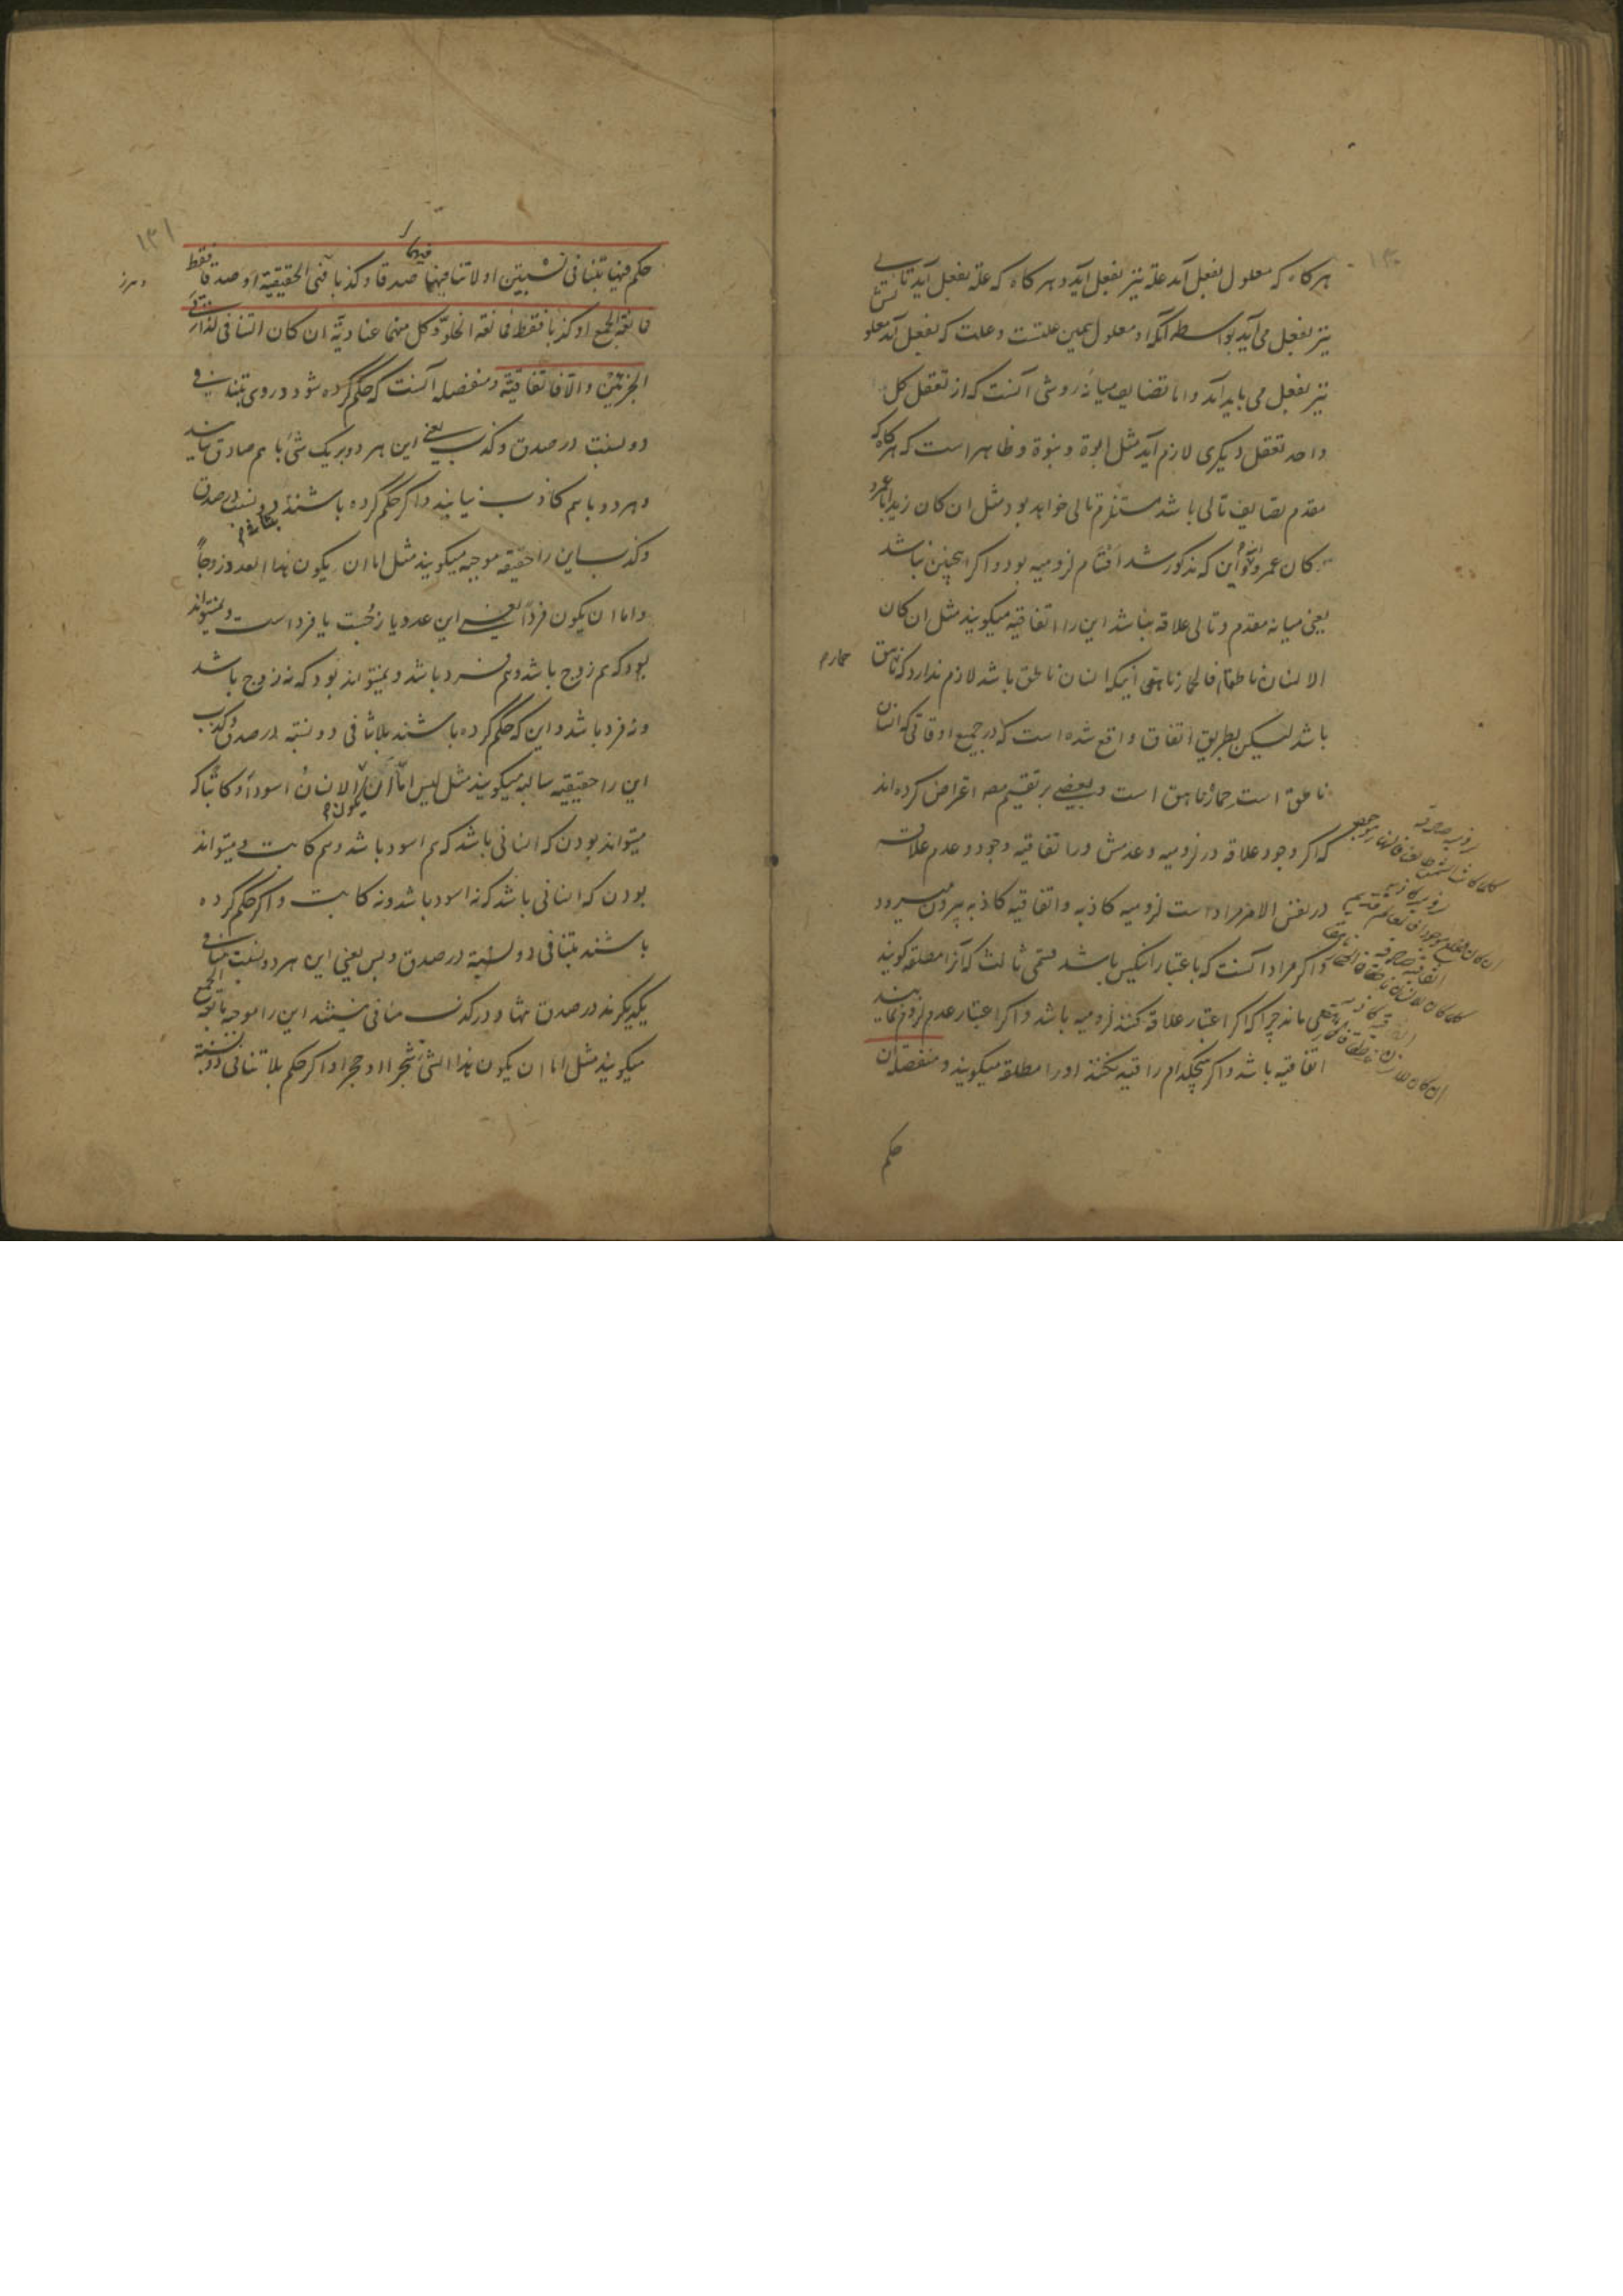 ۱۳۰
هر کاه که معلول بفعل آید علة نیز بفعل آید و هر کاه که علة بفعل آید ثانی
نیز بفعل می آید بواسطه آنکه او معلول همین علتست و علت که بفعل آید معلولش
نیز بفعل می باید آید و اما تضایف میانه دو شی آنست که از تعقل کل
واحد تعقل دیکری لازم آید مثل ابوة و بنوة و ظاهر است که هرکاه که
مقدم مضایف تالی باشد مستلزم تالی خواهد بود مثل ان کان زید ابا عمرو
کان عمرو ابنه این که مذکور شد اقسام لزومیه بود و اکر اینچنین نباشد
یعنی میانه مقدم و تالی علاقه نباشد این را اتفاقیه میکویند مثل ان کان
الانسان ناطقا فالحمار ناهق اینکه انسان ناطق باشد لازم ندارد که ناهق
حمار م
باشد لیکن بطریق اتفاق واقع شده است که در جمیع اوقاتی که انسان
ناطق است حمار ناهق است و بعضی بر تقسیم مصه اعتراض کرده اند
که اکر وجود علاقه در لزومیه و عدمش در اتفاقیه وجود و عدم علاقه
در نفس الامر مراد است لزومیه کاذبه و اتفاقیه کاذبه بیرون میرود
و اکر مراد آنست که باعتبار باشد قسمی ثالث که آنرا مطلقه کویند
می ماند چرا که اکر اعتبار علاقه کنند لزومیه باشد و اکر اعتبار عدم لزوم نمایند
اتفاقیه باشد و اکر بهیچکدام را قید نکنند او را مطلقه میکویند و منفصله ان
حکم
لزومیه صادقه
کلما کانت الشمس طالعة فالنهار موجود
لزومیه کاذبه
اتفاقیه صادقه
۱۳۱
حکم فیها بتنافی نسبتین او لا تنافیهما صدقا و کذبا فهی الحقیقیة او صدقا فقط
فمانعة الجمع او کذبا فقط فمانعة الخلو و کل منهما عنادیة ان کان التنافی لذاتی
الجزئین و الا فاتفاقیة و منفصله آنست که حکم کرده شود در وی بتنافی
دو نسبت در صدق و کذب یعنی این هر دو بر یک شئ با هم صادق نیایند
و هر دو با هم کاذب نیایند و اکر حکم کرده باشند دو نسبت در صدق
و کذب این را حقیقه موجبه میکویند مثل اما ان یکون هذا العدد زوجاً
و اما ان یکون فرداً یعنی این عدد یا زوجست یا فرد است و نمیتواند
بود که هم زوج باشد و هم فرد باشد و نمیتواند بود که نه زوج باشد
و نه فرد باشد و این که حکم کرده باشند بلا تنافی دو نسبة در صدق و کذب
این را حقیقیه سالبه میکویند مثل لیس اما ان یکون الانسان اسود او کاتبا که
میتواند بودن که انسانی باشد که هم اسود باشد و هم کاتب و میتواند
بودن که انسانی باشد که نه اسود باشد و نه کاتب و اکر حکم کرده
باشند بتنافی دو نسبة در صدق و بس یعنی این هر دو نسبت منافی
یکدیکرند در صدق تنها و در کذب منافی نیستند این را موجبه مانعة الجمع
میکویند مثل اما ان یکون هذا الشئ شجرا او حجرا و اکر حکم بلا تنافی دو نسبة